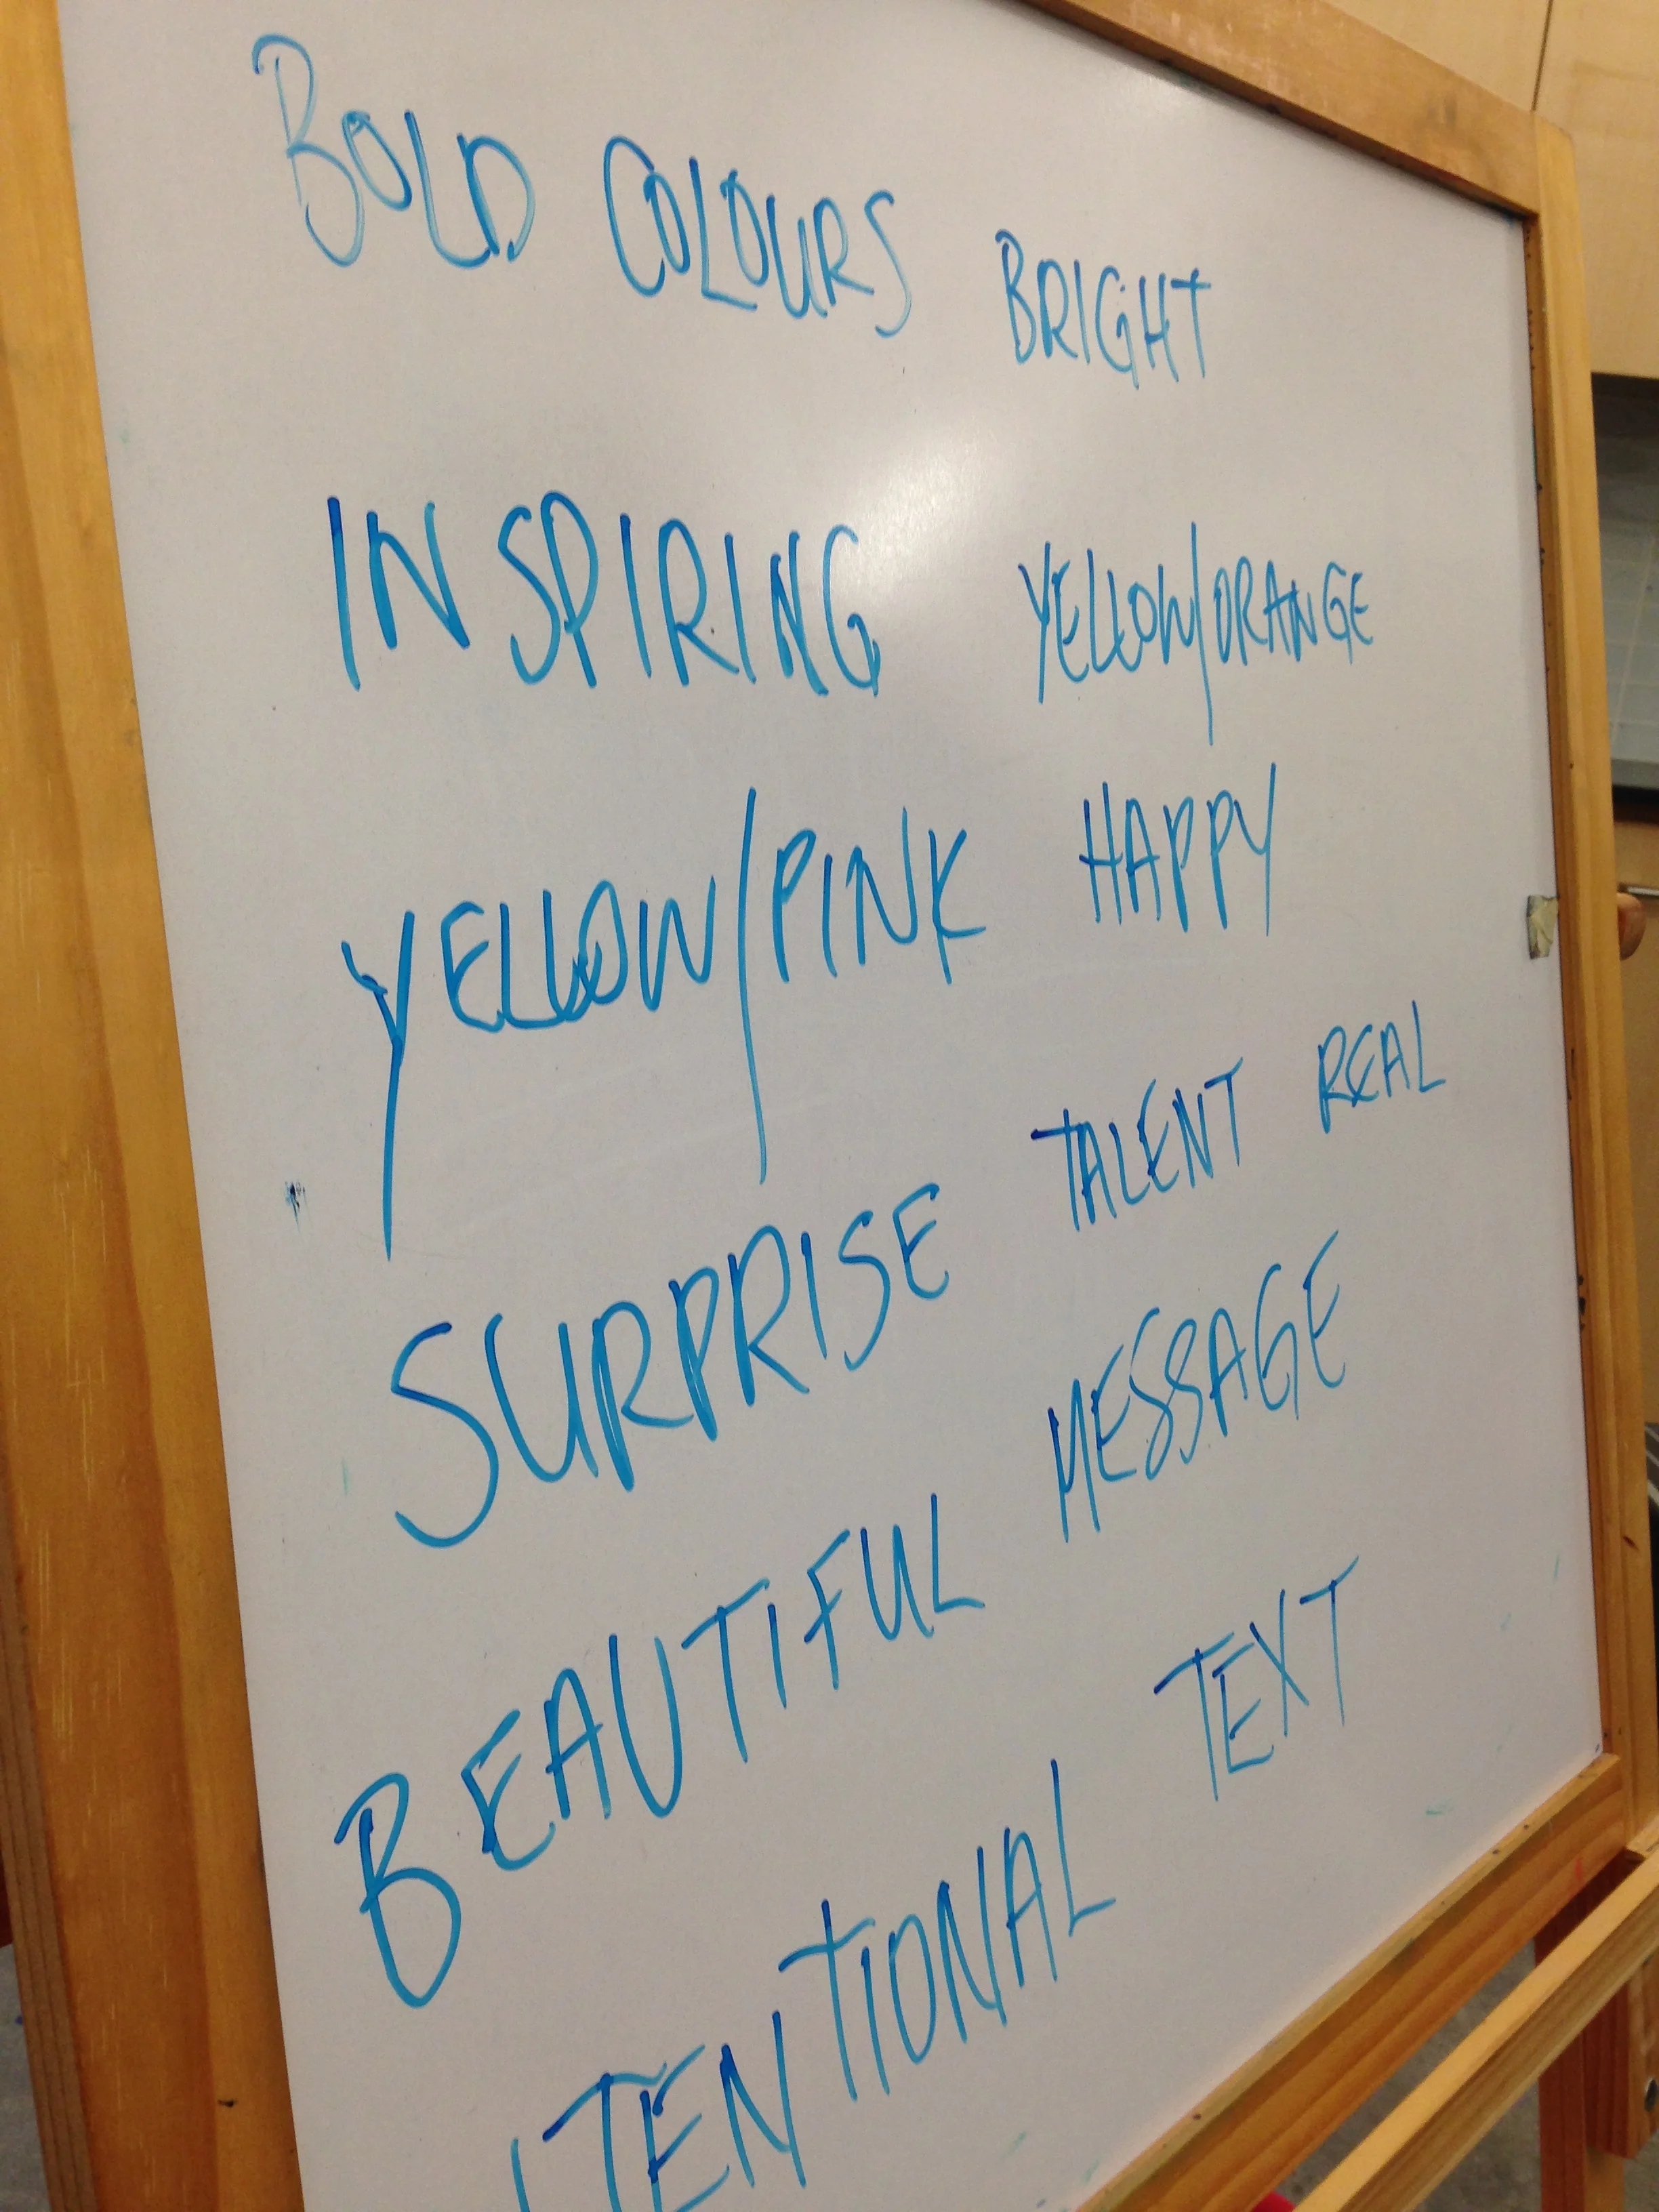 BOLD COLOURS BRIGHT
INSPIRING YELLOW/ORANGE
YELLOW/PINK HAPPY
SURPRISE TALENT REAL
BEAUTIFUL MESSAGE
TENTIONAL TEXT